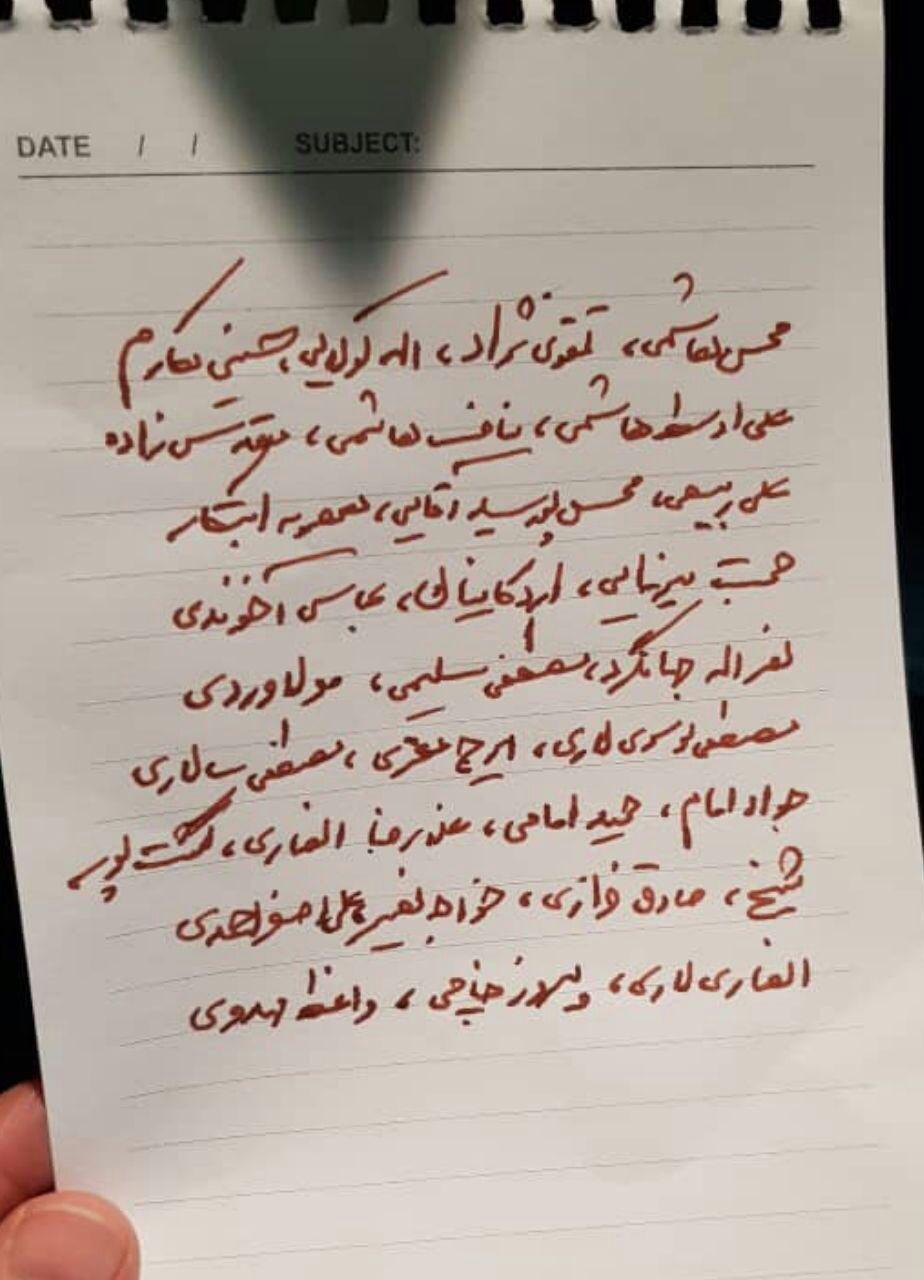 DATE / / SUBJECT:
محسن هاشمی، تقوی نژاد، اله کولایی، حسینی مکارم
علی اوسط هاشمی، هاشمی، مقدس زاده
علی ربیعی، محسن پورسید آقایی، معصومه ابتکار
حجت میرزایی، اردکانیان، عباس آخوندی
نصراله جهانگرد، مصطفی سلیمی، مولاوردی
مصطفی موسوی لاری، ایرج، مصطفی سالاری
جواد امام، حمید امامی، علیرضا انصاری، گشت پور
شیخ، صادق خرازی، خواجه نصیر، علی اصغر احمدی
انصاری لاری، پیروز حناچی، واعظ مهدوی